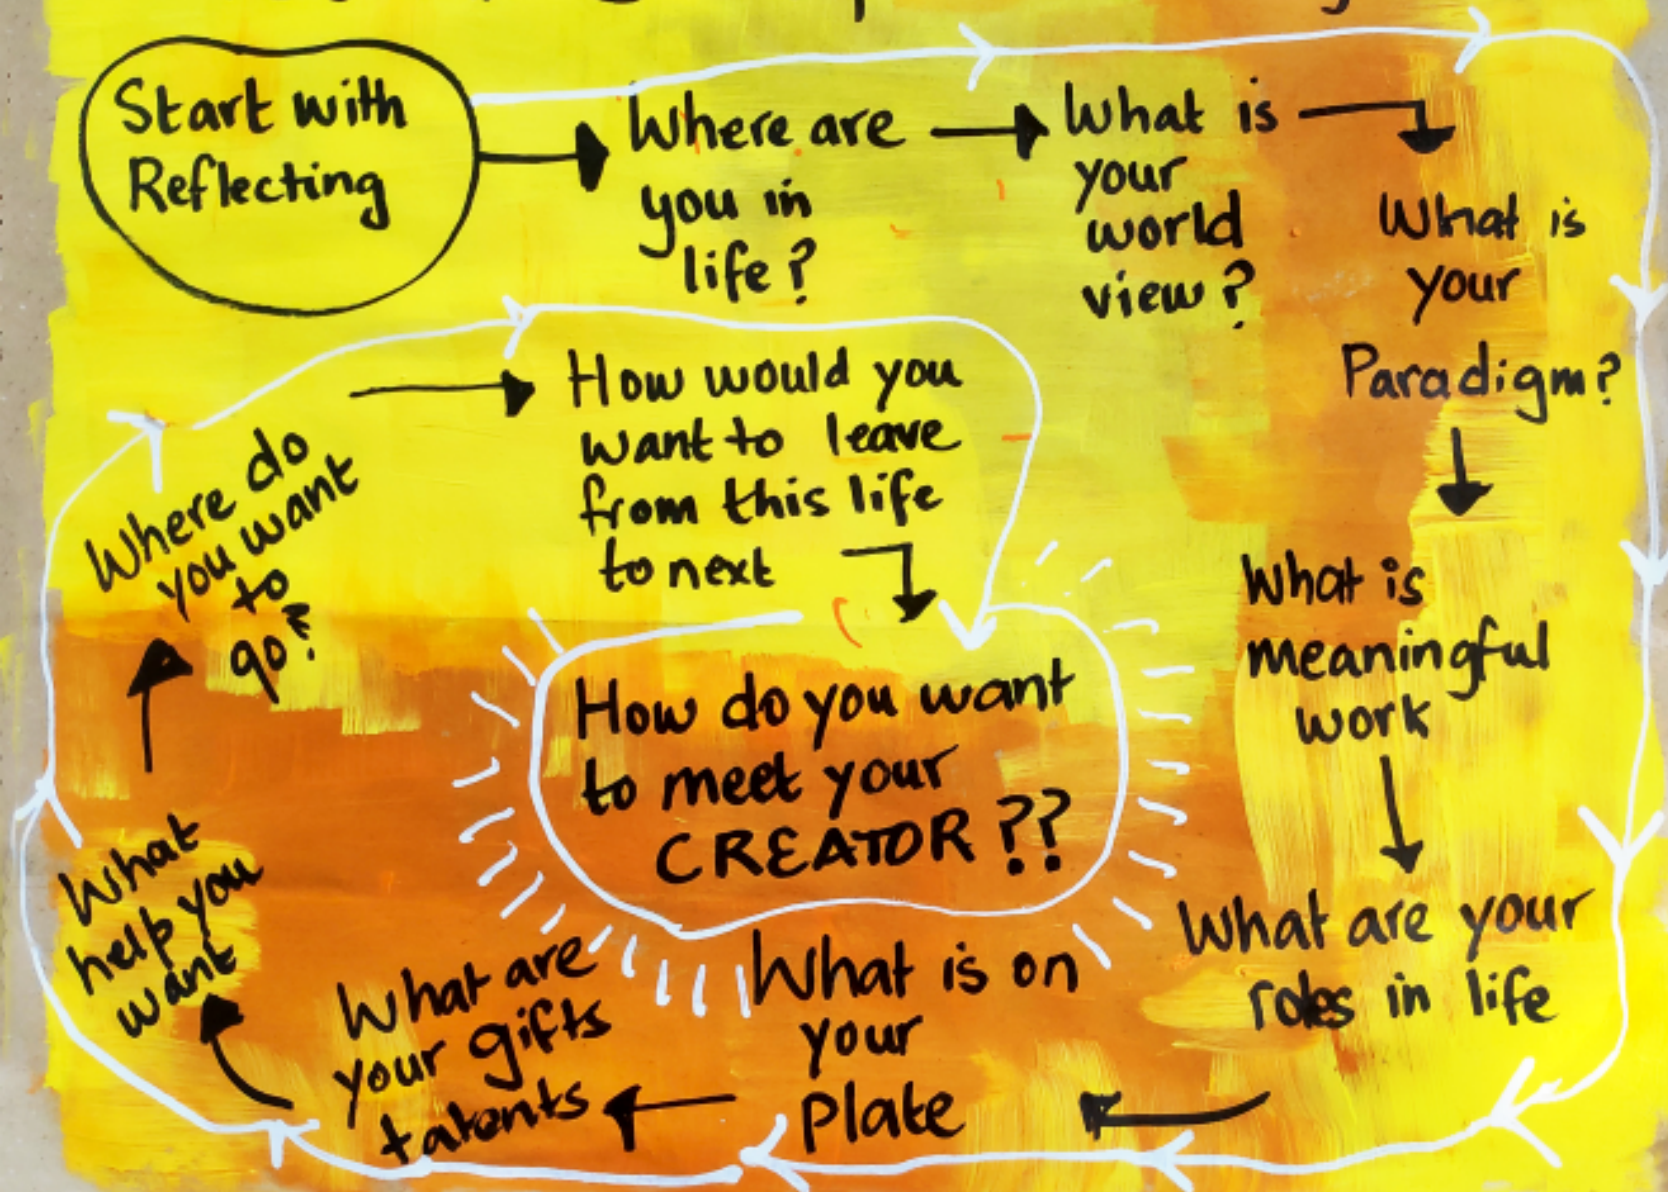 Start with
Reflecting
Where are
you in
life?
What is
your
world
view?
What is
your
Paradigm?
What is
meaningful
work
What are your
roles in life
What is on
your
Plate
What are
your gifts
talents
What
help you
want
Where do
you want
to
go?
How would you
want to leave
from this life
to next
How do you want
to meet your
CREATOR??